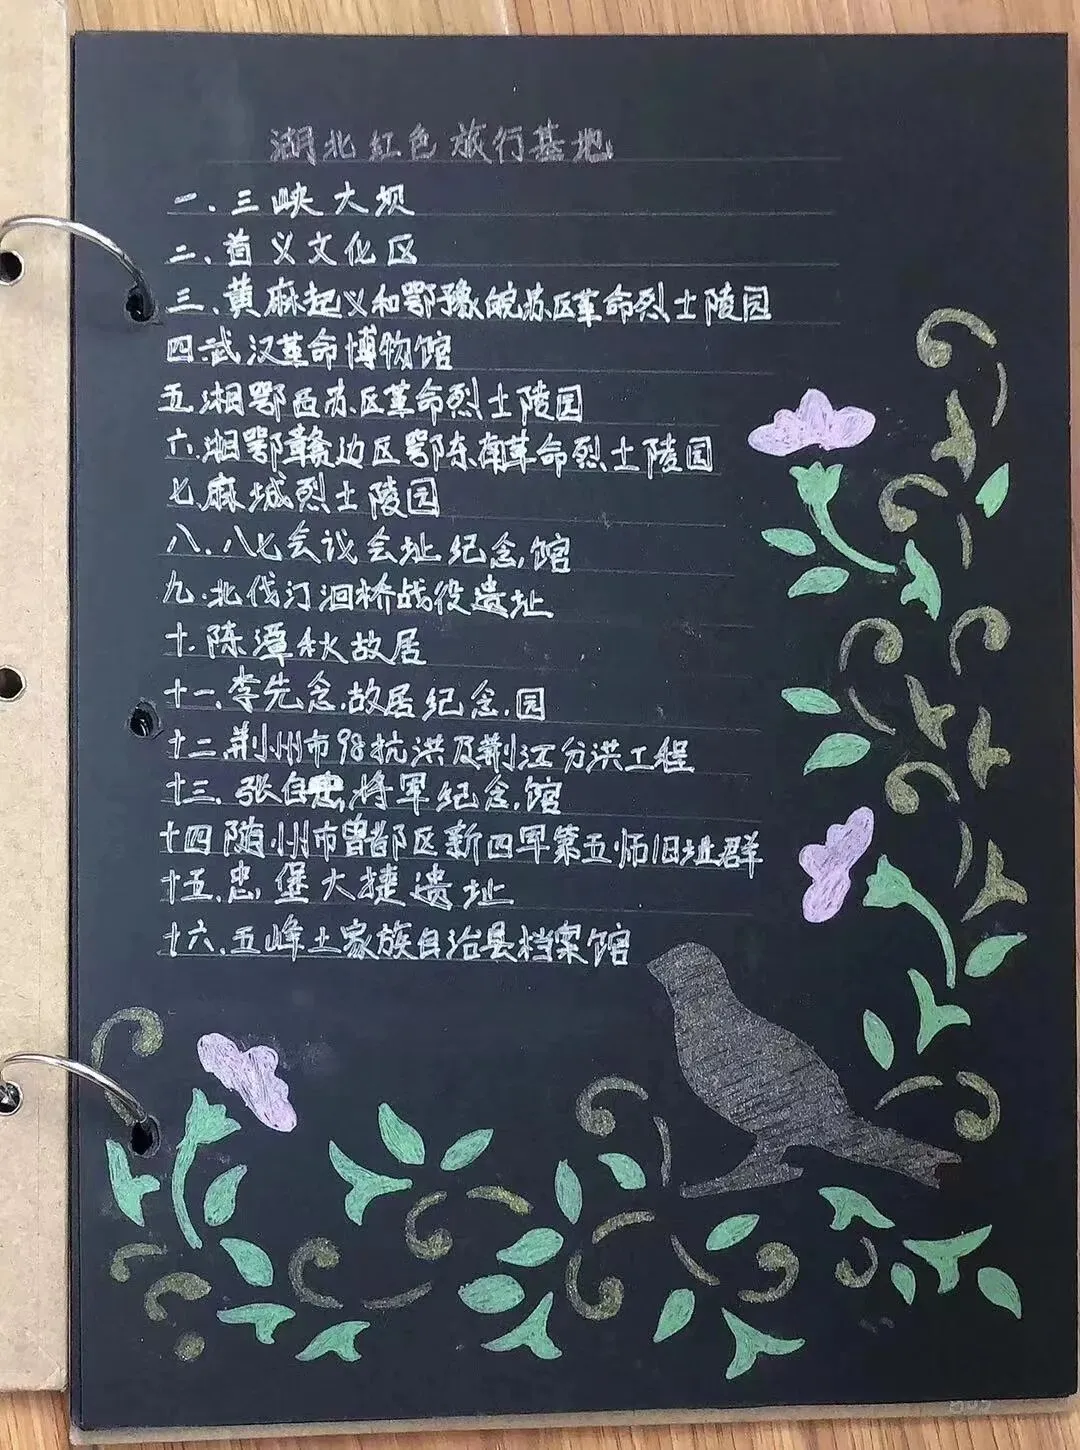 湖北红色旅行基地
一、三峡大坝
二、首义文化区
三、黄麻起义和鄂豫皖苏区革命烈士陵园
四武汉革命博物馆
五湘鄂西苏区革命烈士陵园
六湘鄂赣边区鄂东南革命烈士陵园
七麻城烈士陵园
八、八七会议会址纪念馆
九.北伐汀泗桥战役遗址
十.陈潭秋故居
十一、李先念故居纪念园
十二荆州市98抗洪及荆江分洪工程
十三、张自忠将军纪念馆
十四随州市曾都区新四军第五师旧址群
十五.忠堡大捷遗址
十六.五峰土家族自治县档案馆